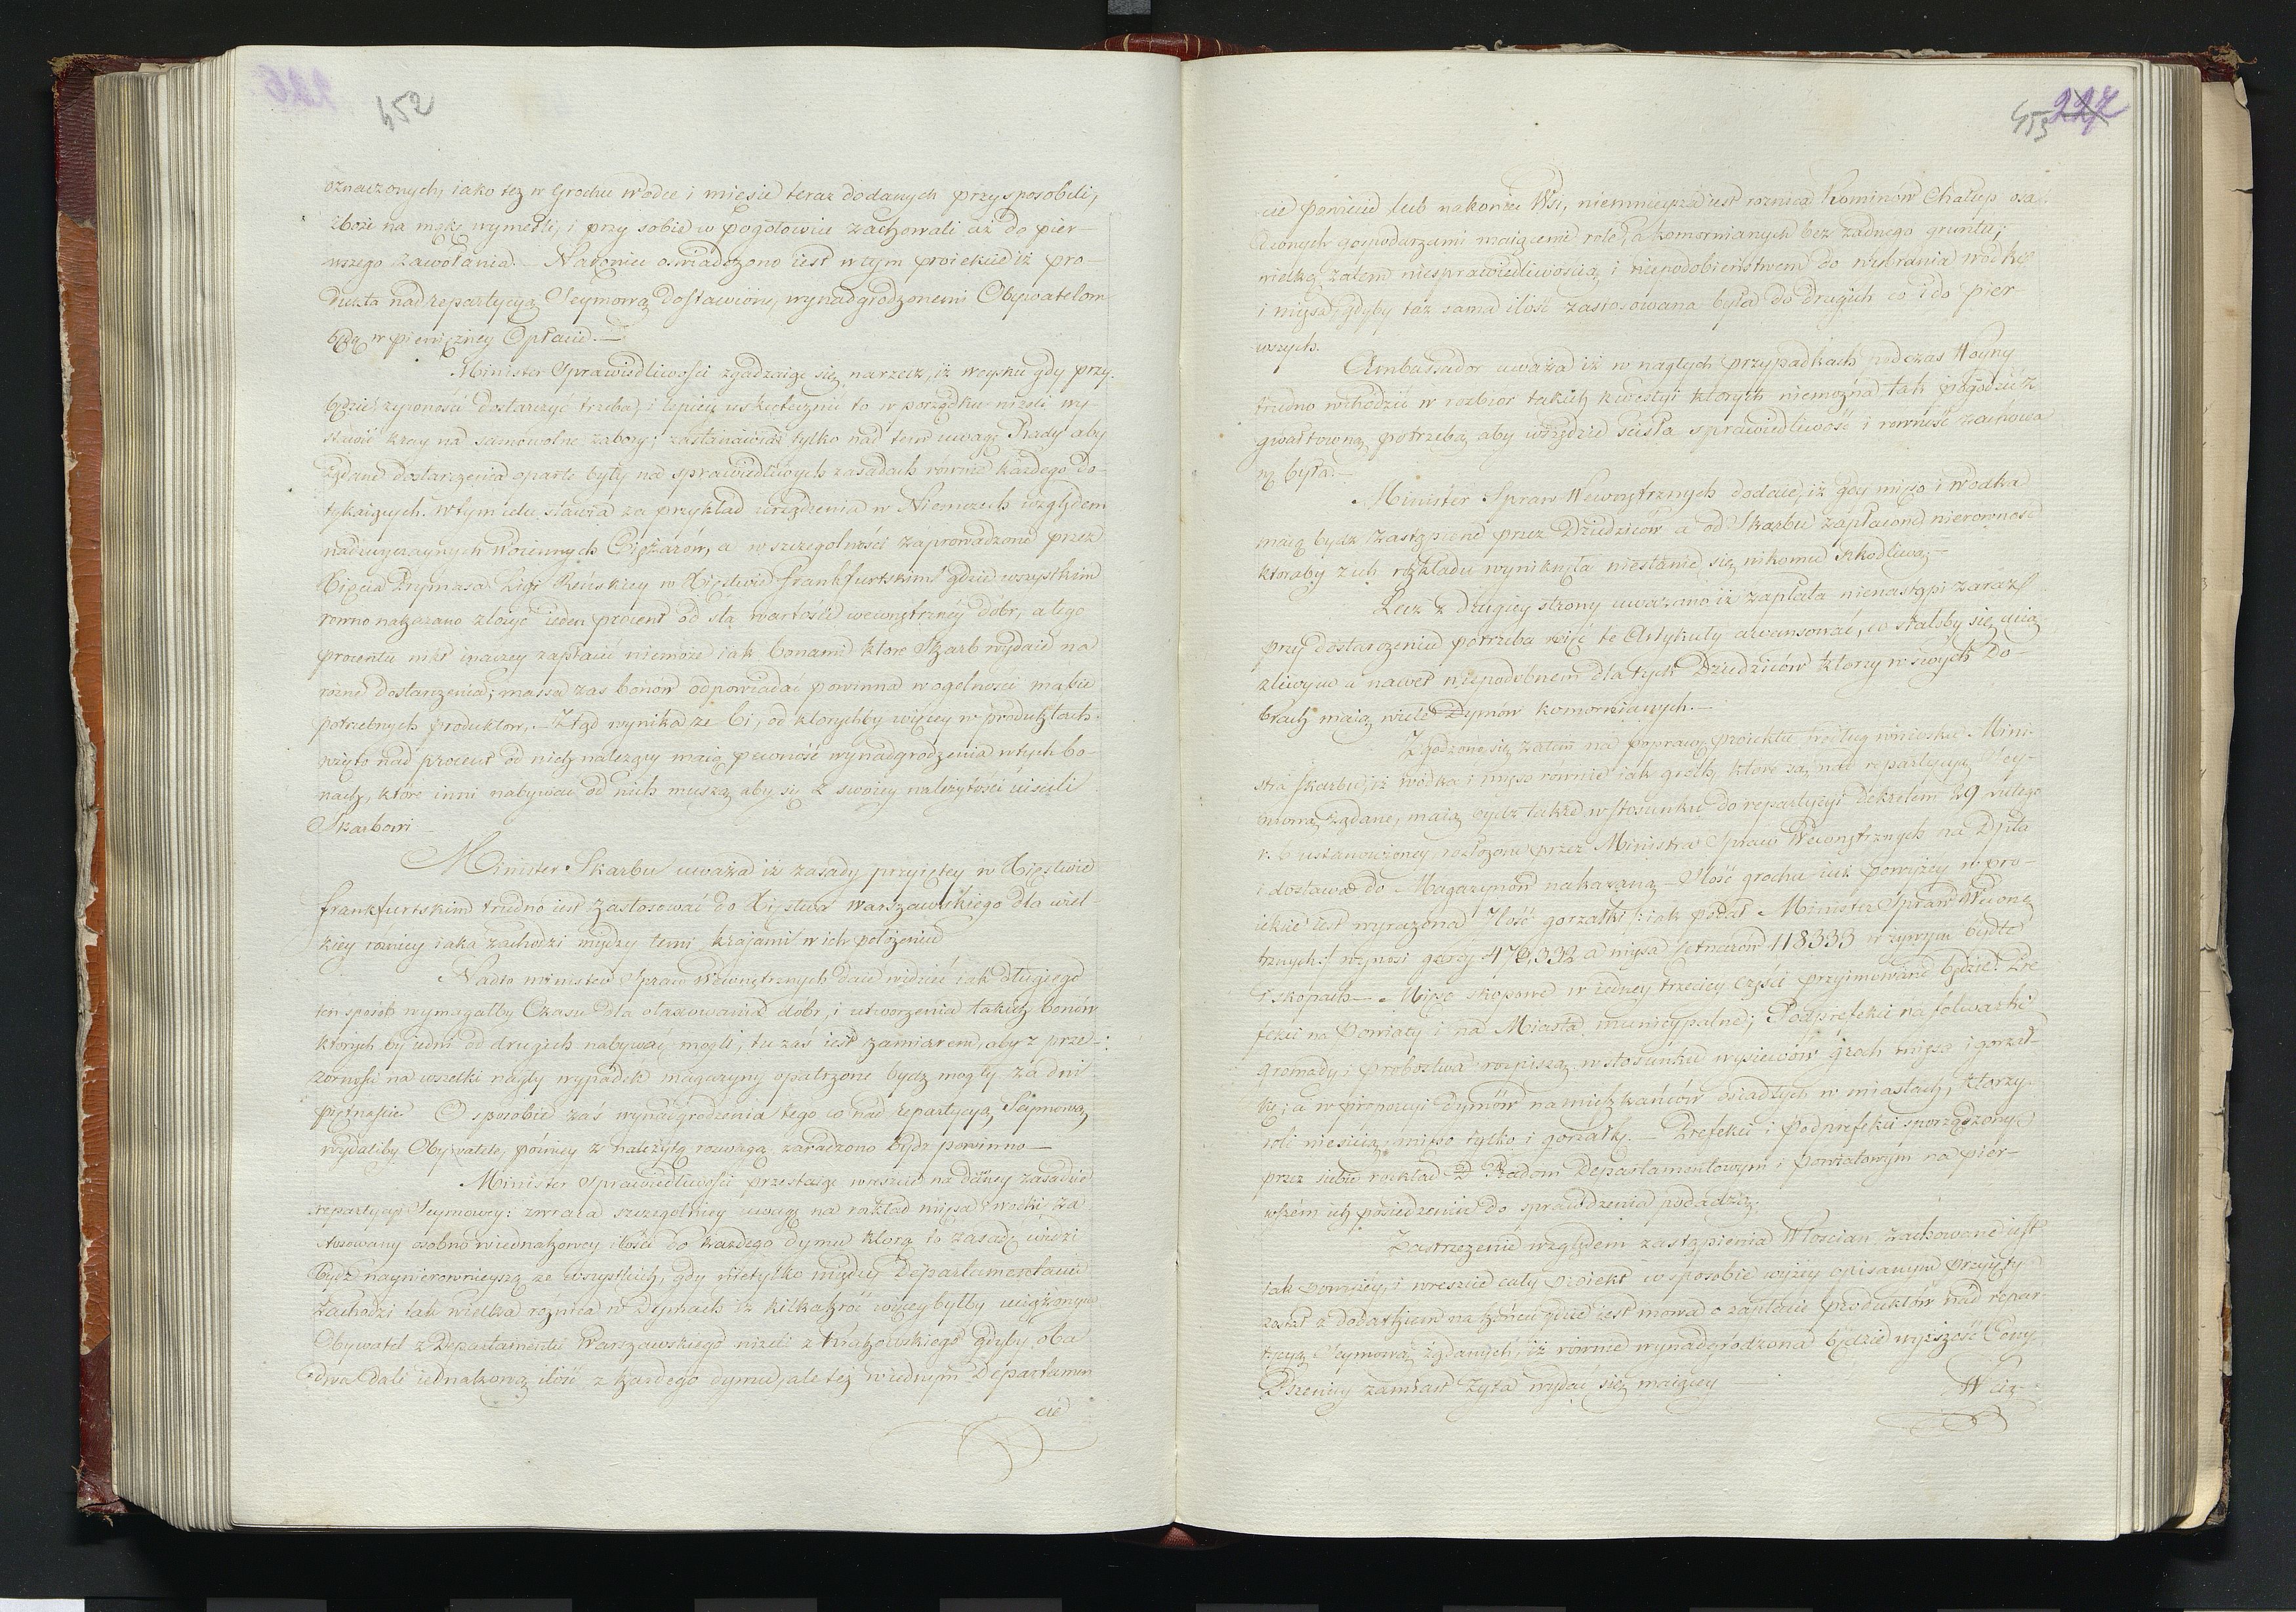 452
oznaczonych, iako też w Grochu wódce i mięsie teraz dodanych przysposobili,
zboże na mąkę wymełli, i przy sobie w pogotowiu zachowali aż do pier-
wszego zawołania. – Nakoniec oświadczono iest w tym proiekcie iż pro-
dukta nad repartycyą Seymową dostawione, wynadgrodzonemi Obywatelom
będą w pieniężney Opłacie. –
Minister Sprawiedliwości zgadzaiąc się na rzecz, iż woysku gdy przy-
będzie, żywności dostarczyć trzeba, i lepiey uskutecznić to w porządku niżeli wy-
stawić kray na samowolne zabory; zastanawia tylko nad tem uwagę Rady aby
żądane dostarczenia oparte były na sprawiedliwych zasadach równie każdego do-
tykaiących. W tym celu stawia za przykład urządzenia w Niemczech względem
nadzwyczaynych Woiennych Ciężarów, a w szczegolności zaprowadzone przez
Xięcia Prymasa Ligi Reńskiey w Xięstwie Frankfurtskim gdzie wszystkim
równo nakazano złożyć ieden procent od sta wartości wewnętrzney dóbr, a tego
procentu nikt inaczey zapłacić niemoże iak bonami które Skarb wydaie na
różne dostarczenia; massa zas bonów odpowiadać powinna w ogolności massie
potrzebnych produktów. – Ztąd wynika że Ci, od ktorychby więcey w produktach
wzięto nad procent od nich należący maią pewność wynadgrodzenia w tych bo-
nach, które inni nabywać od nich muszą, aby się z swoiey należytości uiscili
Skarbowi –
Minister Skarbu uważa iż zasady przyiętey w Xięstwie
Frankfurtskim trudno iest zastosować do Xięstwa Warszawskiego dla wiel-
kiey różnicy iaka zachodzi między temi kraiami w ich położeniu
Nadto minister Spraw Wewnętrznych daie widzieć iak długiego
ten sposób wymagałby Czasu dla otaxowania dóbr, i utworzenia takich bonów
których by iedni od drugich nabywać mogli, tu zaś iest zamiarem, aby z prze-
zorności na wszelki nagły wypadek magazyny opatrzone bydz mogły za dni
piętnaście O sposobie zaś wynadgrodzenia tego co nad repartycyą Seymową
wydaliby Obywatele, późniey z należytą rozwagą zaradzono bydz powinno –
Minister Sprawiedliwości przestaiąc wreszcie na daney zasadzie
repartycyi Seymowey: zwraca szczególniey uwagę na rozkład mięsa i wodki za-
stosowany osobno w iednakowey ilości do każdego dymu którą to zasadę widzi
bydź naynierownieyszą ze wszystkich, gdy nietylko między Departamentami
zachodzi tak wielka roznica w Dymach iż kilkakroć więcey byłby uciążonym
Obywatel z Departamentu Warszawskiego niżeli z Krakowskiego gdyby oba
dwa dali iednakową ilość z każdego dymu, ale też w iednym Departamen
cie
453 227
cie powiecie lub nakoniec Wsi, niemnieysza iest roznica Kominów Chałup osa-
dzonych gospodarzami maiącemi role, a komornianych bez żadnego gruntu;
wielką zatem niesprawiedliwością i niepodobieństwem do wybrania wódki
i mięsa, gdyby taż sama ilość zastosowana była do drugich co i do pier-
wszych.
Ambassador uważa iż w nagłych przypadkach podczas Woyny
trudno wchodzić w rozbior takich kwestyi ktorych niemożna tak pogodzić z
gwałtowną potrzebą aby wszędzie ścisła sprawiedliwość i rowność zachowa
ną była. –
Minister Spraw Wewnętrznych dodaie, iż gdy mięso i wodka
maią bydz zastąpione przez Dziedziców a od Skarbu zapłacone nierowność
ktoraby z ich rozkładu wyniknęła niestanie się nikomu szkodliwą. –
Lecz z drugiey strony uważano iż zapłata nienastąpi zaraz
przy dostarczeniu potrzeba więc te Artykuły awansować, co stałoby się ucią-
żliwym a nawet niepodobnem dla tych Dziedziców ktorzy w swych Do-
brach maią wiele Dymów komornianych. –
Zgodzono się zatem na poprawę proiektu podług wniosku Mini-
stra Skarbu, iż wódka i mięso równie iak groch, które są nad repartycyą Sey-
mową żądane, maią bydz także w stosunku do repartycyi Dekretem 29 Lutego
r. b. ustanowioney, rozłożone przez Ministra Spraw Wewnętrznych na Dpta
i dostawa do Magazynów nakazaną – Ilość grochu iuż powyżey w pro-
iekcie iest wyrażona Ilość gorzałki /: iak podał Minister Spraw Wewnę
trznych :/ wynosi garcy 473,332 a mięsa cetnarów 118333 w żywym bydle
i skopach – Mięso skopowe w iedney trzeciey części przyimowane będzie. Pre
fekci na Powiaty i na Miasta municypalne; Podprefekci na folwarki
gromady i probostwa rozpiszą w stosunku wysiewów groch mięso i gorzał-
kę; a w proporcyi dymów na mieszkańców osiadłych w miastach, ktorzy
roli nie sieią, mięso tylko i gorzałkę. – Prefekci i Podprefekci sporządzony
przez siebie rozkład Radom Departamentowym i Powiatowym na pier-
wszem ich posiedzeniu do sprawdzenia podadzą.
Zastrzeżenie względem zastąpienia Włościan zachowane iest
iak powyżey, i wreszcie cały proiekt w sposobie wyżey opisanym przyięty
został z dodatkiem na końcu gdzie iest mowa o zapłacie produktów nad repar
tycyą Seymową żądanych, iż równie wynadgrodzona będzie wyższość Ceny
Pszenicy zamiast żyta wydać się maiącey
W cią-